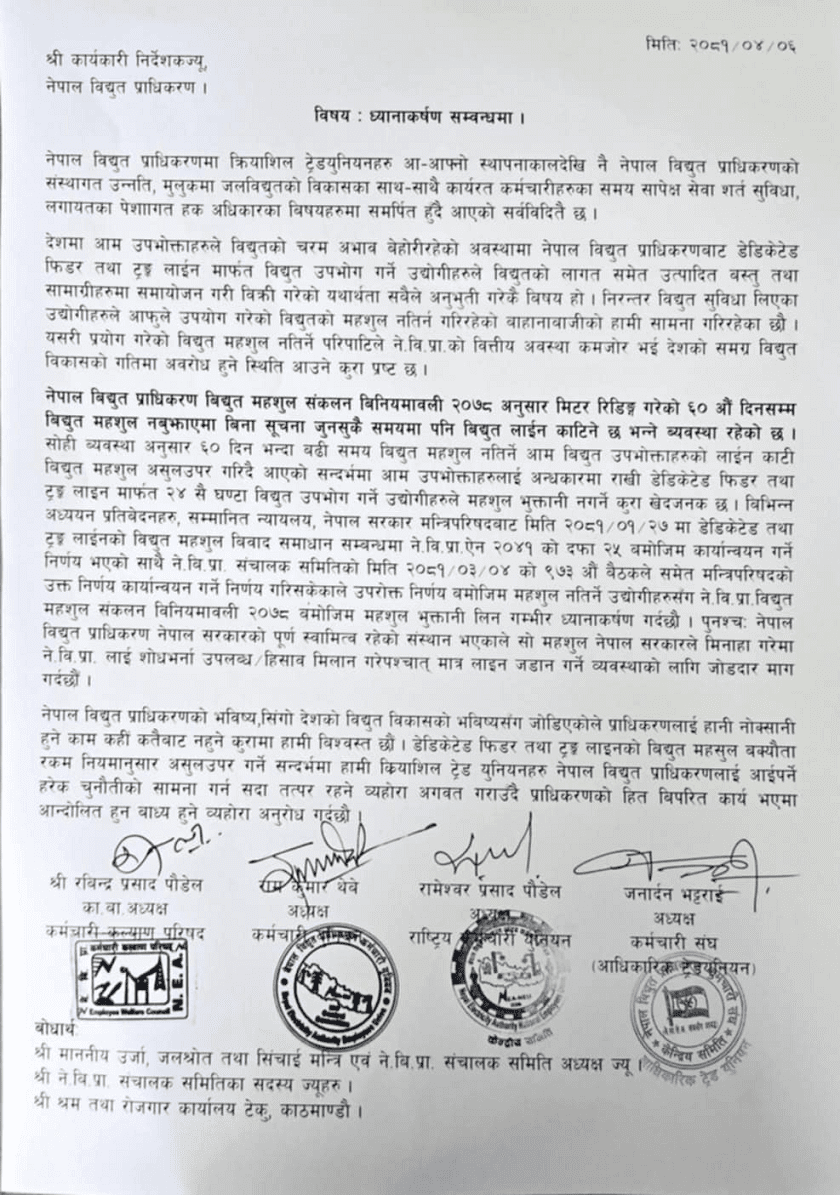 मितिः २०८१/०४/०६
श्री कार्यकारी निर्देशकज्यू,
नेपाल विद्युत प्राधिकरण ।
विषय : ध्यानाकर्षण सम्बन्धमा ।
नेपाल विद्युत प्राधिकरणमा क्रियाशिल ट्रेडयुनियनहरु आ-आफ्नो स्थापनाकालदेखि नै नेपाल विद्युत प्राधिकरणको
संस्थागत उन्नति, मुलुकमा जलविद्युतको विकासका साथ-साथै कार्यरत कर्मचारीहरुका समय सापेक्ष सेवा शर्त सुविधा,
लगायतका पेशाागत हक अधिकारका बिषयहरुमा समर्पित हुँदै आएको सर्वविदितै छ ।
देशमा आम उपभोक्ताहरुले विद्युतको चरम अभाव बेहोरीरहेको अवस्थामा नेपाल विद्युत प्राधिकरणबाट डेडिकेटेड
फिडर तथा ट्रङ्क लाईन मार्फत विद्युत उपभोग गर्ने उद्योगीहरुले विद्युतको लागत समेत उत्पादित वस्तु तथा
सामाग्रीहरुमा समायोजन गरी विक्री गरेको यथार्थता सबैले अनुभुती गरेकै विषय हो । निरन्तर विद्युत सुविधा लिएका
उद्योगीहरुले आफुले उपयोग गरेको विद्युतको महशुल नतिर्न गरिरहेको बाहानावाजीको हामी सामना गरिरहेका छौ ।
यसरी प्रयोग गरेको विद्युत महशुल नतिर्ने परिपाटिले ने.वि.प्रा.को वित्तीय अवस्था कमजोर भई देशको समग्र विद्युत
विकासको गतिमा अवरोध हुने स्थिति आउने कुरा प्रष्ट छ ।
नेपाल विद्युत प्राधिकरण विद्युत महशुल संकलन बिनियमावली २०७८ अनुसार मिटर रिडिङ्ग गरेको ६० औं दिनसम्म
बिद्युत महशुल नबुझाएमा बिना सूचना जुनसुकै समयमा पनि बिद्युत लाईन काटिने छ भन्ने ब्यवस्था रहेको छ ।
सोही व्यवस्था अनुसार ६० दिन भन्दा बढी समय बिद्युत महशुल नतिर्ने आम बिद्युत उपभोक्ताहरुको लाईन काटी
बिद्युत महशुल असुलउपर गरिदै आएको सन्दर्भमा आम उपभोक्ताहरुलाई अन्धकारमा राखी डेडिकेटेड फिडर तथा
ट्रङ्क लाइन मार्फत २४ सै घण्टा विद्युत उपभोग गर्ने उद्योगीहरुले महशुल भुक्तानी नगर्ने कुरा खेदजनक छ । विभिन्न
अध्ययन प्रतिवेदनहरु, सम्मानित न्यायलय, नेपाल सरकार मन्त्रिपरिषदबाट मिति २०८१/०१/२७ मा डेडिकेटेड तथा
ट्रङ्क लाईनको विद्युत महशुल बिवाद समाधान सम्बन्धमा ने.बि.प्रा.ऐन २०४१ को दफा २५ बमोजिम कार्यान्वयन गर्ने
निर्णय भएको साथै ने.बि.प्रा. संचालक समितिको मिति २०८१/०३/०४ को ९७३ औं बैठकले समेत मन्त्रिपरिषदको
उक्त निर्णय कार्यान्वयन गर्ने निर्णय गरिसकेकाले उपरोक्त निर्णय बमोजिम महशुल नतिर्ने उद्योगीहरुसंग ने.बि.प्रा.विद्युत
महशुल संकलन विनियमावली २०७८ बमोजिम महशुल भुक्तानी लिन गम्भीर ध्यानाकर्षण गर्दछौ । पुनश्चः नेपाल
विद्युत प्राधिकरण नेपाल सरकारको पूर्ण स्वामित्व रहेको संस्थान भएकाले सो महशुल नेपाल सरकारले मिनाहा गरेमा
ने.बि.प्रा. लाई शोधभर्ना उपलब्ध/हिसाब मिलान गरेपश्चात् मात्र लाइन जडान गर्ने व्यवस्थाको लागि जोडदार माग
गर्दछौं ।
नेपाल विद्युत प्राधिकरणको भविष्य,सिंगो देशको विद्युत विकासको भविष्यसंग जोडिएकोले प्राधिकरणलाई हानी नोक्सानी
हुने काम कहीं कतैबाट नहुने कुरामा हामी विश्वस्त छौं । डेडिकेटेड फिडर तथा ट्रङ्क लाइनको बिद्युत महसुल बक्यौता
रकम नियमानुसार असुलउपर गर्ने सन्दर्भमा हामी क्रियाशिल ट्रेड युनियनहरु नेपाल विद्युत प्राधिकरणलाई आईपर्ने
हरेक चुनौतीको सामना गर्न सदा तत्पर रहने व्यहोरा अगवत गराउँदै प्राधिकरणको हित बिपरित कार्य भएमा
आन्दोलित हुन बाध्य हुने व्यहोरा अनुरोध गर्दछौ ।
श्री रबिन्द्र प्रसाद पौडेल राम कुमार थेबे रामेश्वर प्रसाद पौडेल जनार्दन भट्टराई
का.वा.अध्यक्ष अध्यक्ष अध्यक्ष अध्यक्ष
कर्मचारी कल्याण परिषद कर्मचारी राष्ट्रिय कर्मचारी युनियन कर्मचारी संघ
(आधिकारिक ट्रेडयुनियन)
कर्मचारी कल्याण परिषद्
N.E.A.
Employee Welfare Council
केन्द्रीय समिति
केन्द्रिय समिति
आधिकारिक ट्रेड युनियन
बोधार्थः
श्री माननीय उर्जा, जलश्रोत तथा सिंचाई मन्त्रि एवं ने.बि.प्रा. संचालक समिति अध्यक्ष ज्यू ।
श्री ने.बि.प्रा. संचालक समितिका सदस्य ज्यूहरु ।
श्री श्रम तथा रोजगार कार्यालय टेकु, काठमाण्डौ ।